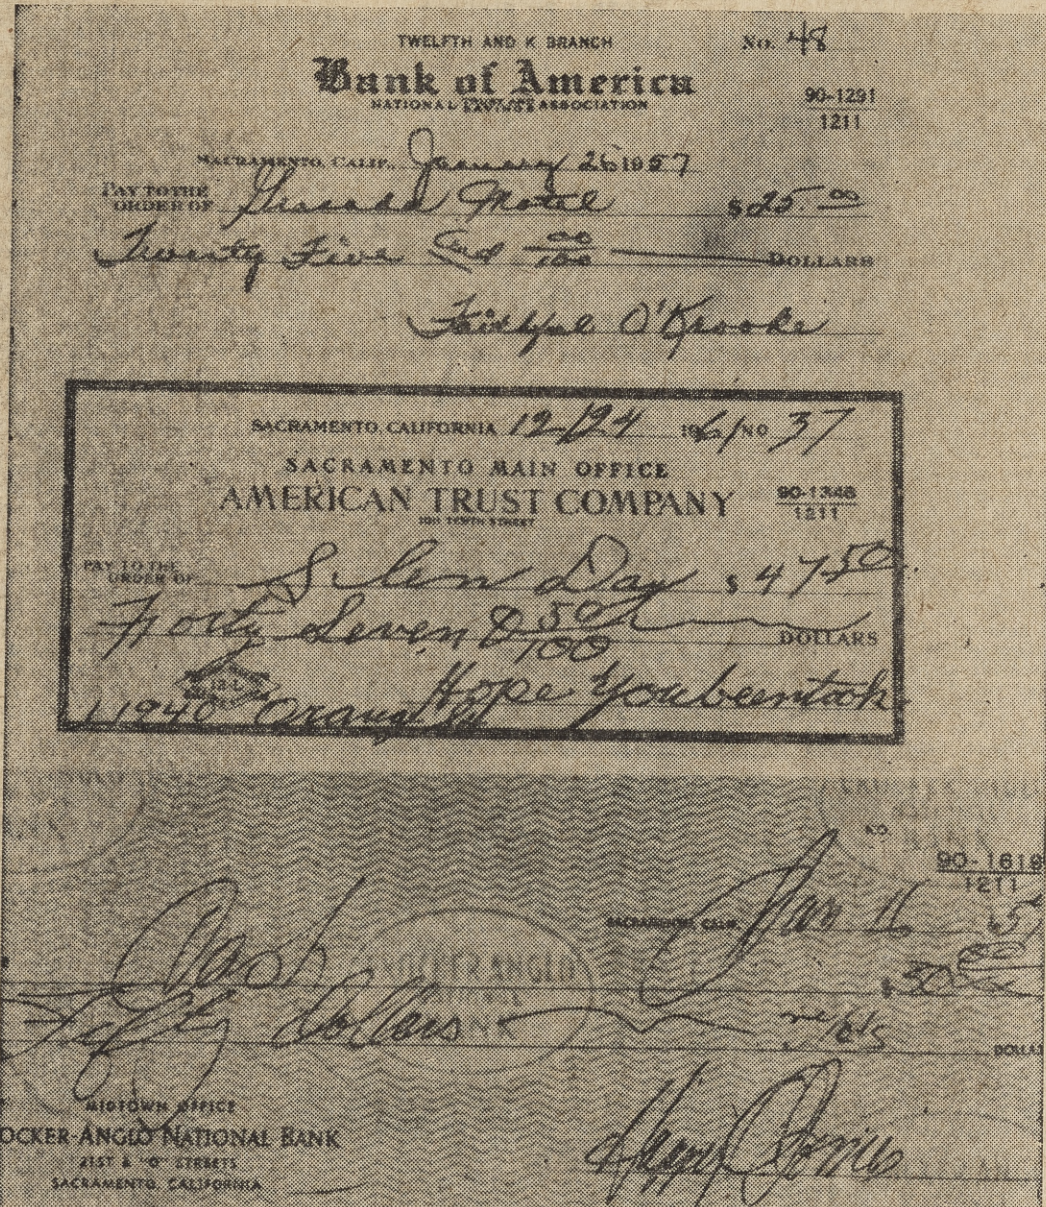 TWELFTH AND K BRANCH No. 48
Bank of America
NATIONAL TRUST AND SAVINGS ASSOCIATION
90-1291
1211
SACRAMENTO, CALIF., January 26 1957
PAY TO THE
ORDER OF Motel $25.00
Twenty Five and 00/100 DOLLARS
Faithful O'Krooke
SACRAMENTO, CALIFORNIA 12/24 1961 No 37
SACRAMENTO MAIN OFFICE
AMERICAN TRUST COMPANY
90-1346
1211
1011 TENTH STREET
PAY TO THE
ORDER OF S. Len Day $ 47 50
Forty Seven & 50/100 DOLLARS
Hope Youbeentook
11940
NO.
90-1619
1211
SACRAMENTO, CALIF. Jan 16 57
Cash
CROCKER ANGLO
NATIONAL
BANK
Fifty Dollars DOLLA
MIDTOWN OFFICE
OCKER-ANGLO NATIONAL BANK
21ST & "O" STREETS
SACRAMENTO, CALIFORNIA